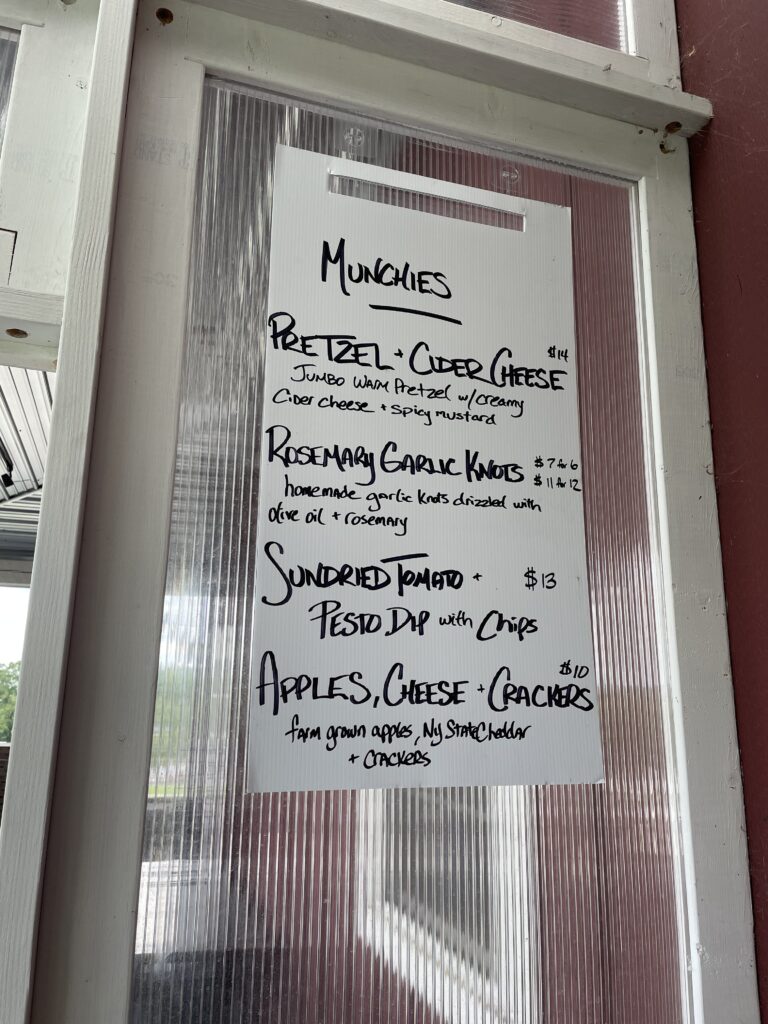 MUNCHIES
PRETZEL + CIDER CHEESE $14
JUMBO WARM Pretzel w/creamy
Cider cheese + Spicy mustard
ROSEMARY GARLIC KNOTS $7 for 6
$11 for 12
homemade garlic knots drizzled with
olive oil + rosemary
SUNDRIED TOMATO + $13
PESTO DIP with Chips
APPLES, CHEESE + CRACKERS $10
farm grown apples, NY State Cheddar
+ CRACKERS